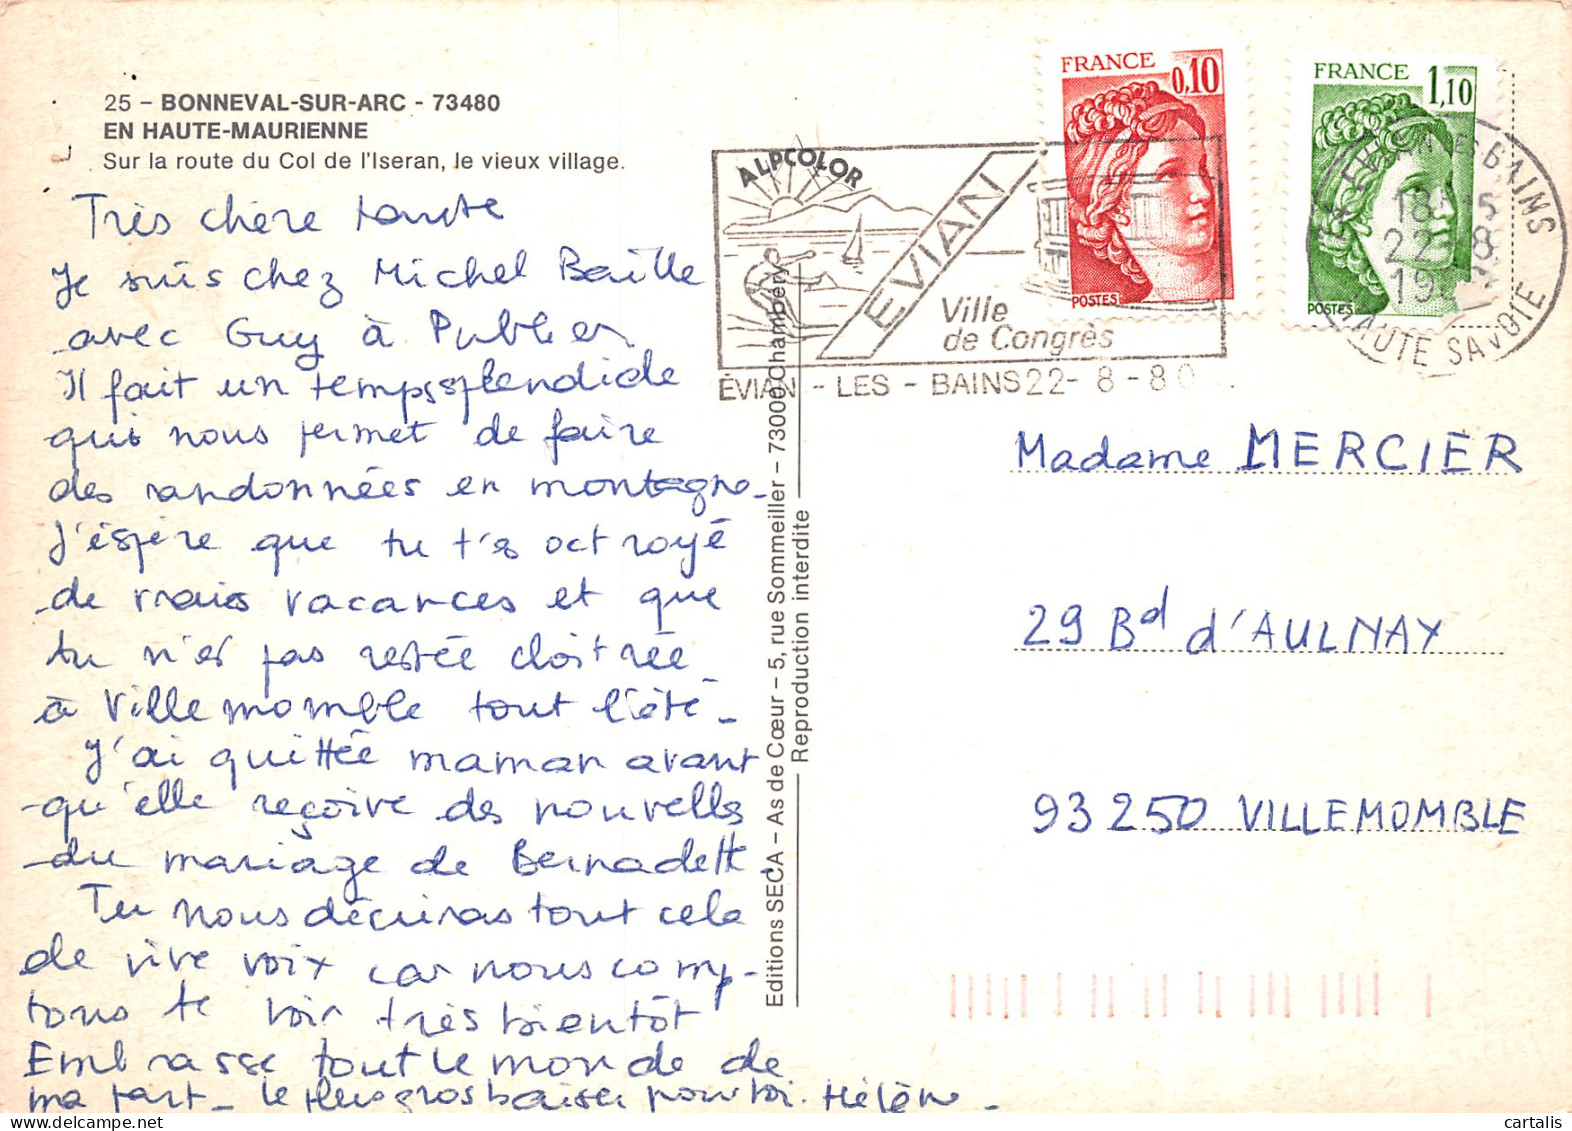 25 – BONNEVAL-SUR-ARC - 73480
EN HAUTE-MAURIENNE
Sur la route du Col de l'Iseran, le vieux village.
Très chère tante
Je suis chez Michel Baille
avec Guy à Publier
Il fait un temps splendide
qui nous permet de faire
des randonnées en montagne_
J'éspère que tu t'es octroyé
de vraies vacances et que
tu n'es pas restée cloitrée
à Villemomble tout l'été_
J'ai quittée maman avant
qu'elle reçoive des nouvelles
du mariage de Bernadette.
Tu nous décriras tout cela
de vive voix car nous comp-
tons te voir très bientôt
Embrasse tout le monde de
ma part_ le plus gros baiser pour toi. Hélène_
Editions SECA – As de Cœur – 5, rue Sommeiller – 73000 Chambéry
Reproduction interdite
ALPCOLOR
EVIAN
Ville
de Congrès
ÉVIAN - LES - BAINS 22 - 8 - 80
FRANCE
0,10
POSTES
FRANCE
1,10
POSTES
EVIAN LES BAINS
22-8
HAUTE SAVOIE
Madame MERCIER
29 Bd d'AULNAY
93250 VILLEMOMBLE
cartalis
www.delcampe.net